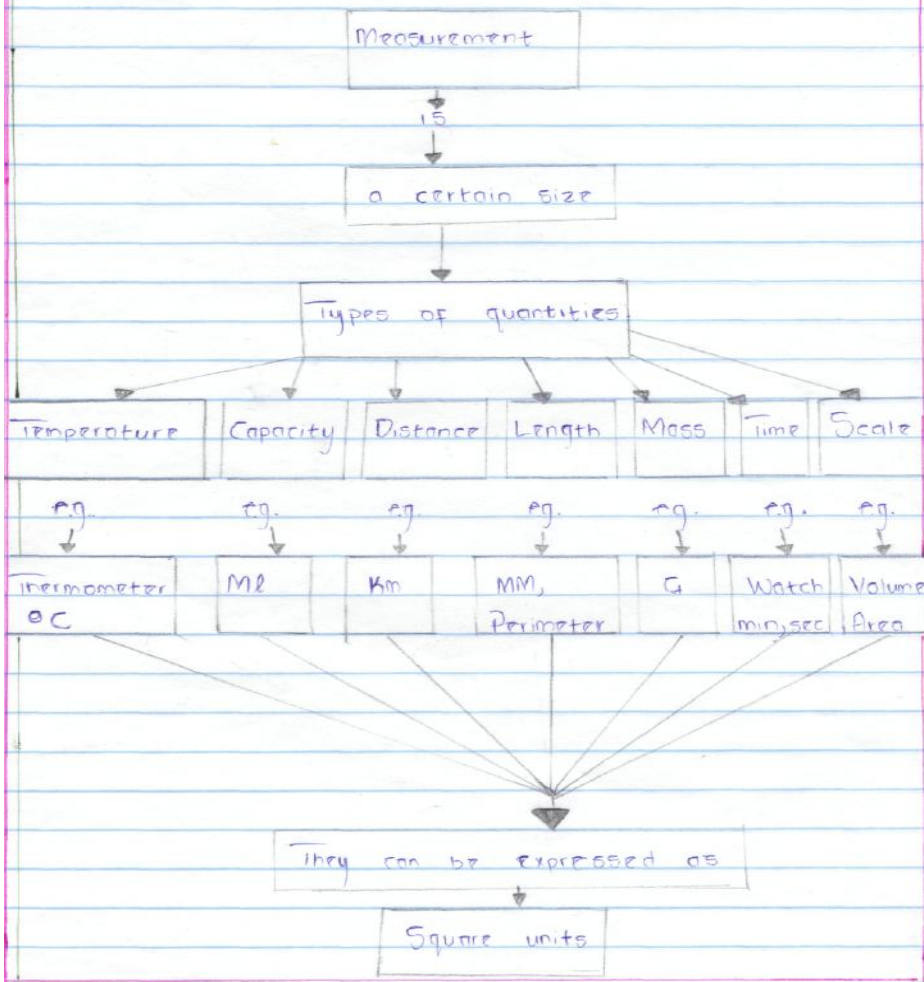 Measurement
is
a certain size
Types of quantities
Temperature Capacity Distance Length Mass Time Scale
e.g. e.g. e.g. e.g. e.g. e.g. e.g.
Thermometer Ml Km MM, G Watch Volume
°C Perimeter min, sec Area
They can be expressed as
Square units